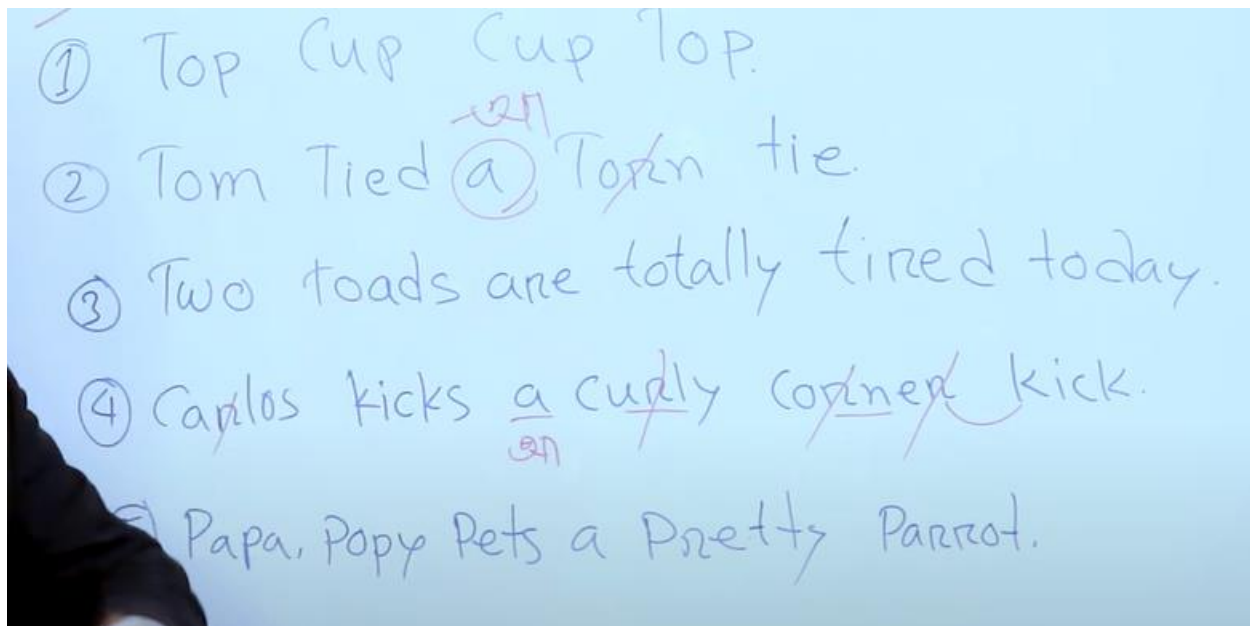 ① Top Cup Cup Top.
আ
② Tom Tied a Torn tie.
③ Two toads are totally tired today.
④ Carlos kicks a curly corner kick.
আ
Papa, Popy Pets a Pretty Parrot.